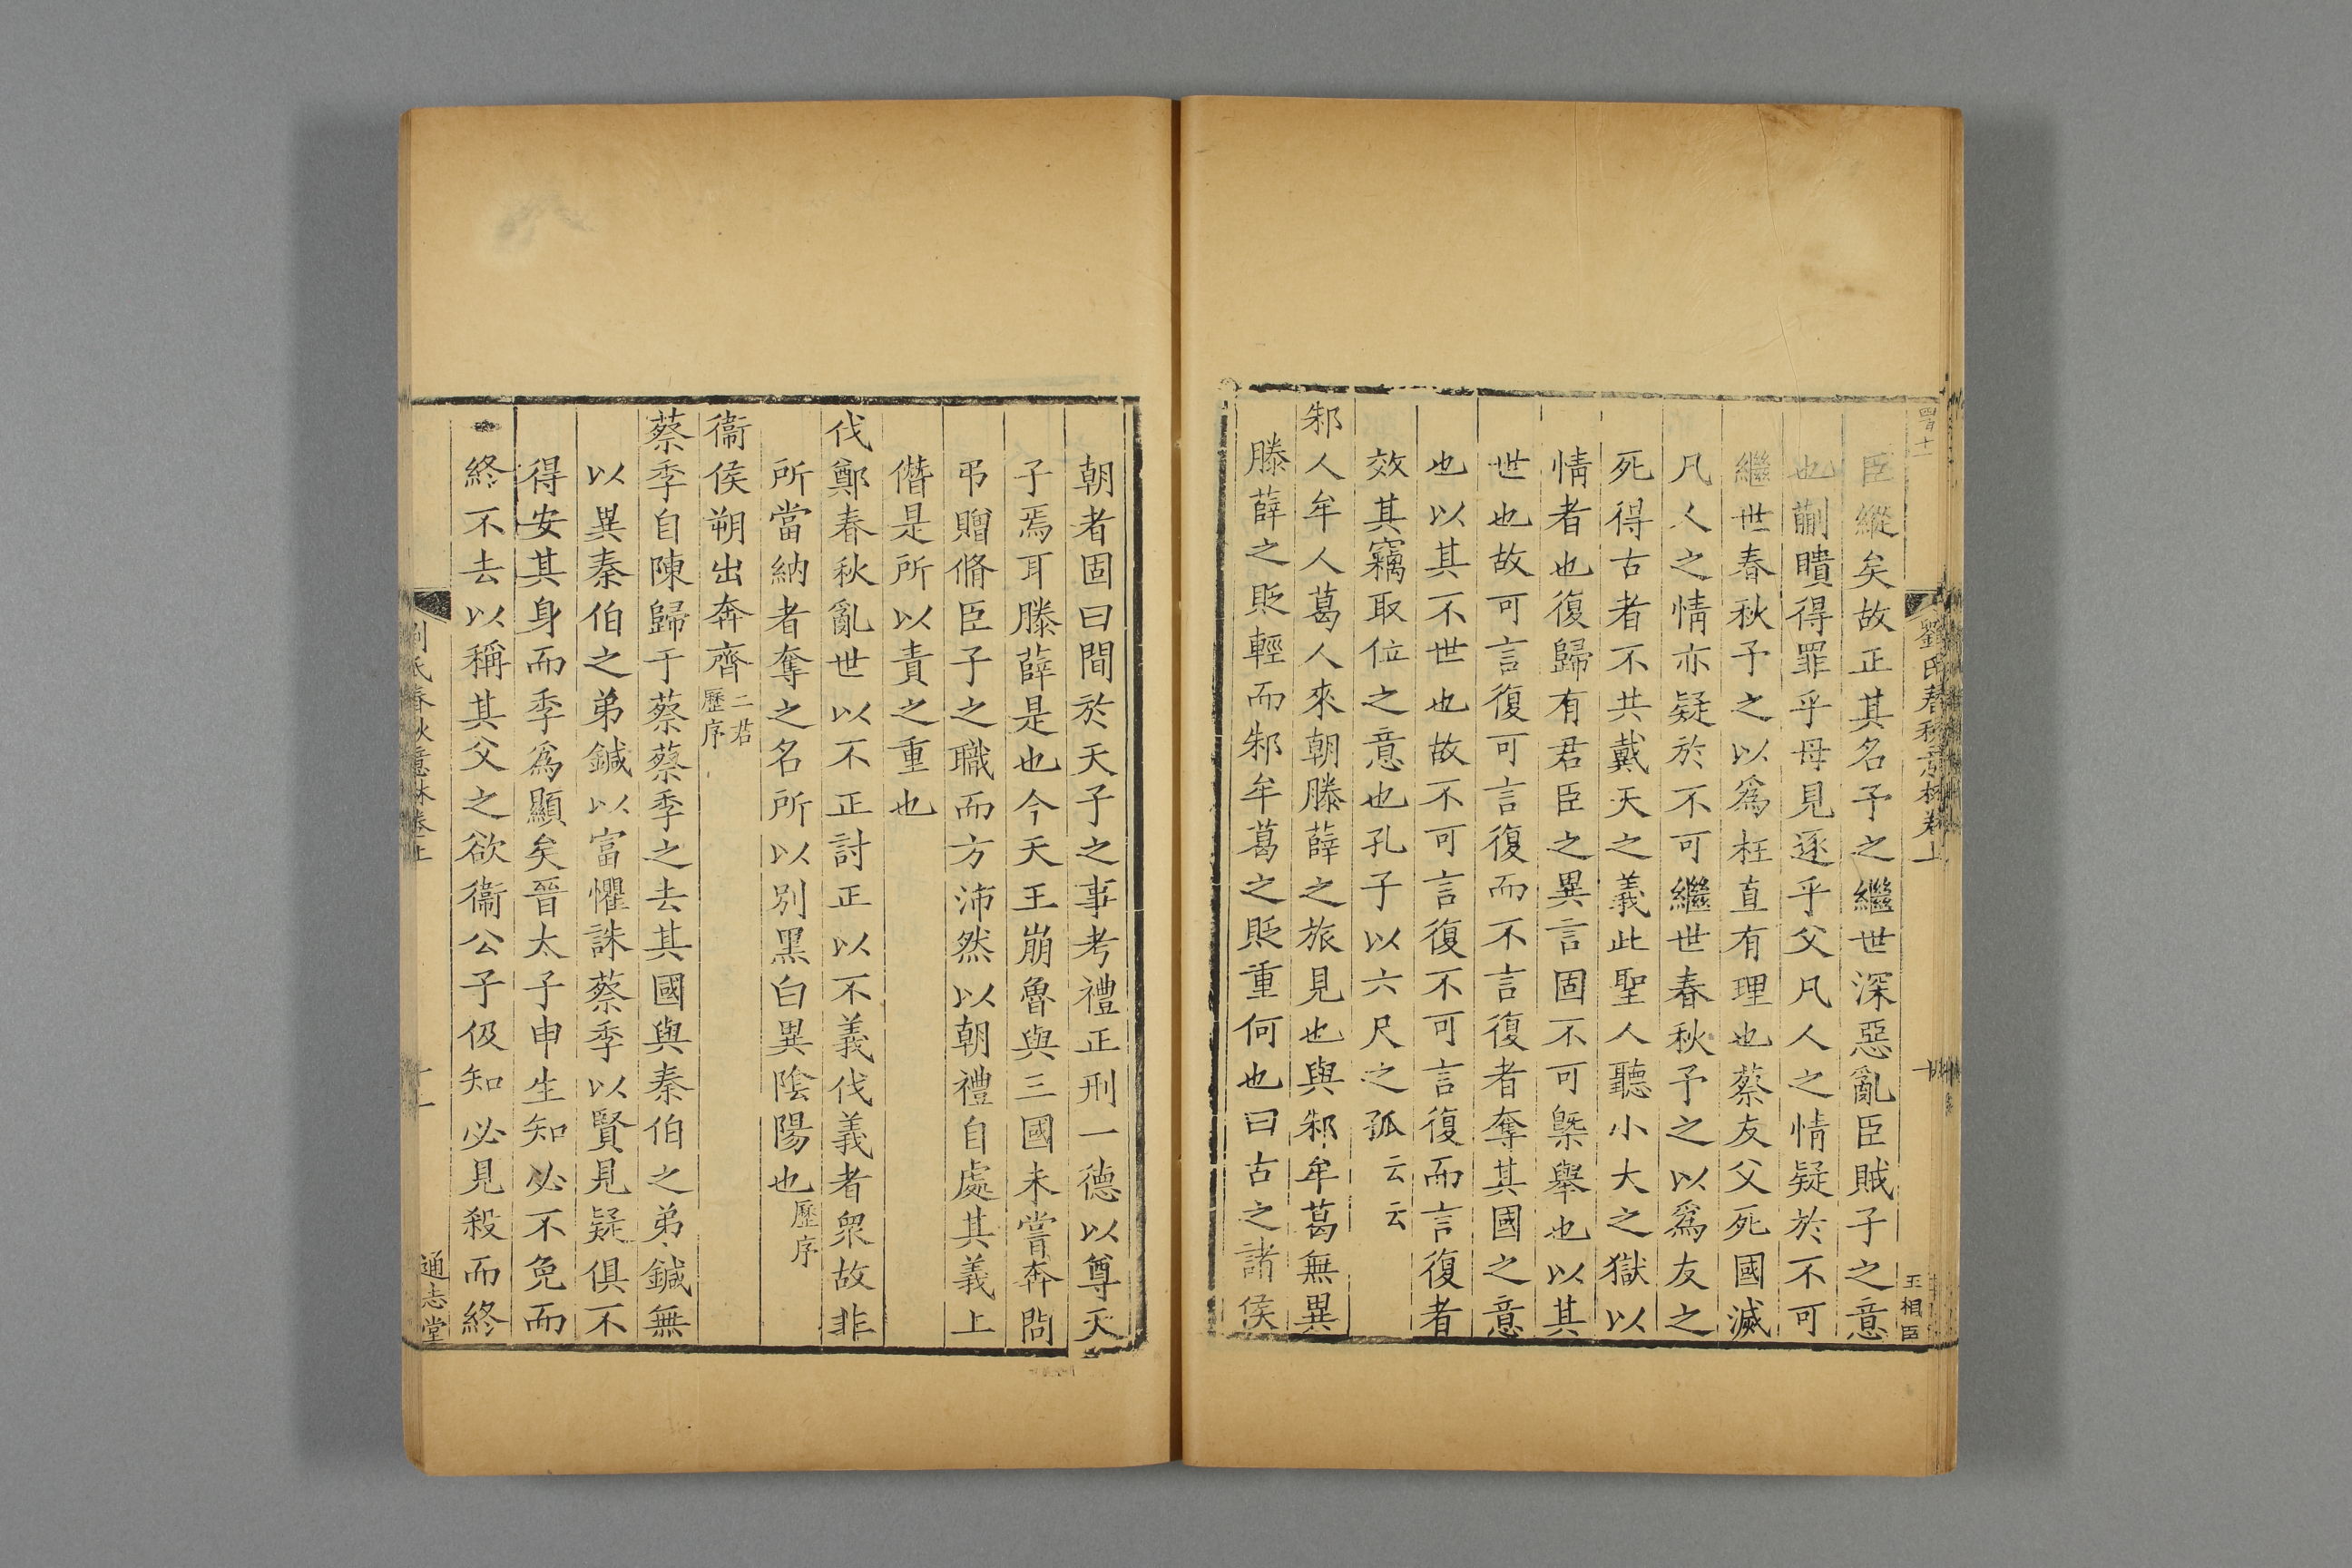 劉氏春秋意林卷上
王相臣
臣縱矣故正其名予之繼世深惡亂臣賊子之意
也蒯聵得罪乎母見逐乎父凡人之情疑於不可
繼世春秋予之以爲枉直有理也蔡友父死國滅
凡人之情亦疑於不可繼世春秋予之以爲友之
死得古者不共戴天之義此聖人聽小大之獄以
情者也復歸有君臣之異言固不可槩舉也以其
世也故可言復可言復而不言復者奪其國之意
也以其不世也故不可言復不可言復而言復者
效其竊取位之意也孔子以六尺之孤云云
邾人牟人葛人來朝滕薛之旅見也與邾牟葛無異
滕薛之貶輕而邾牟葛之貶重何也曰古之諸侯
朝者固曰間於天子之事考禮正刑一德以尊天
子焉耳滕薛是也今天王崩魯與三國未嘗奔問
弔贈脩臣子之職而方沛然以朝禮自處其義上
僭是所以責之重也
伐鄭春秋亂世以不正討正以不義伐義者衆故非
所當納者奪之名所以別黑白異陰陽也歷序
衞侯朔出奔齊二君歷序
蔡季自陳歸于蔡蔡季之去其國與秦伯之弟鍼無
以異秦伯之弟鍼以富懼誅蔡季以賢見疑俱不
得安其身而季爲顯矣晉太子申生知必不免而
終不去以稱其父之欲衞公子伋知必見殺而終
劉氏春秋意林卷上
十一
通志堂